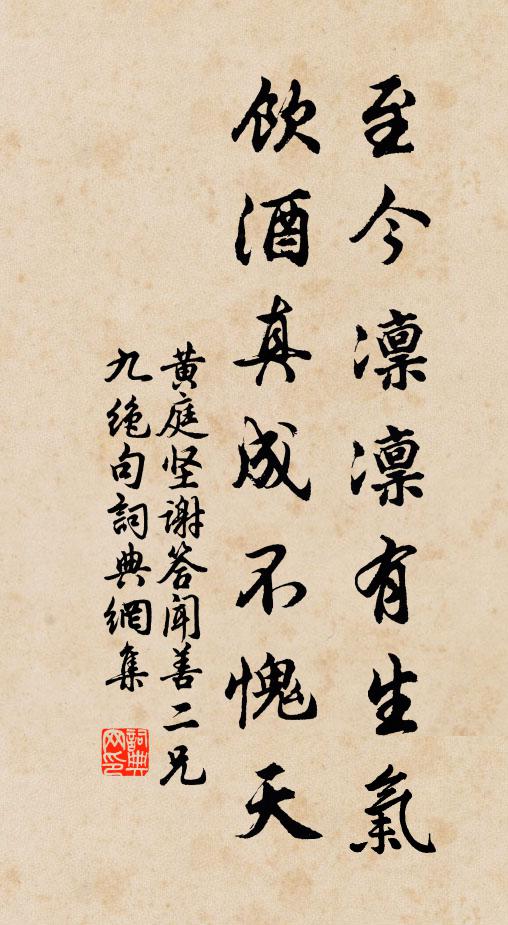 至今凛凛有生氣
飲酒真成不愧天
黄庭坚谢答闻善二兄
九绝句詞典網集
詞典
网印